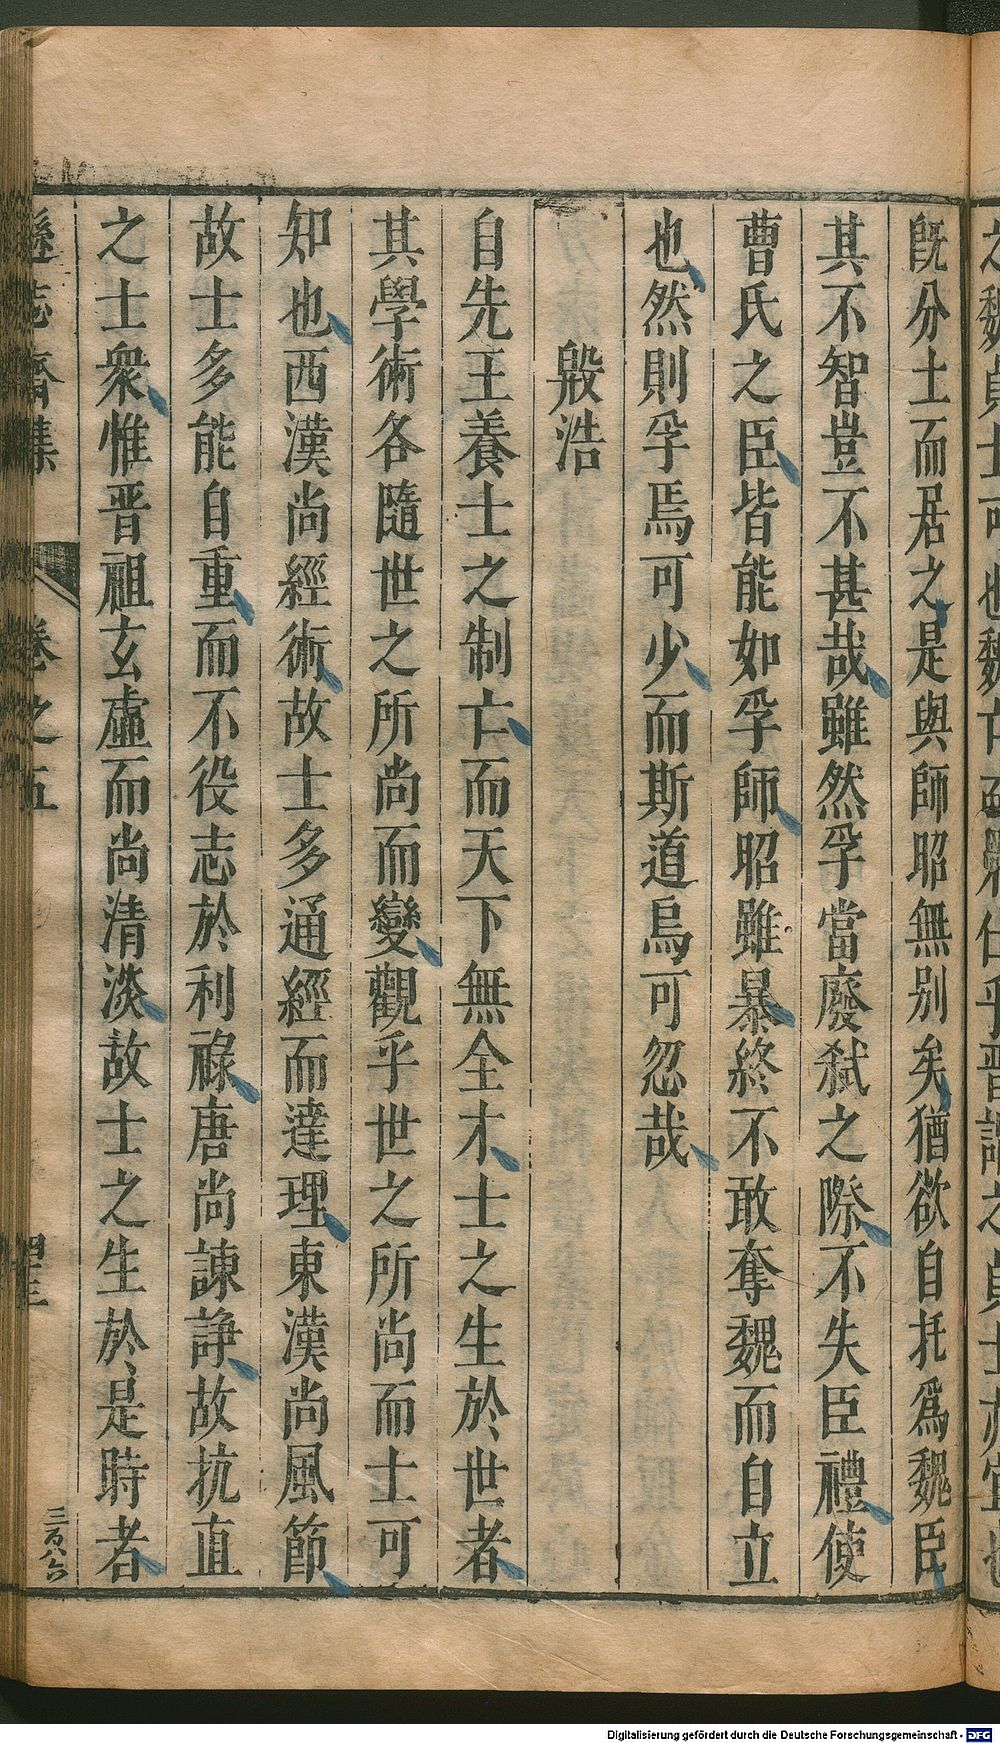 既分土而居之是與師昭無別矣猶欲自托爲魏臣
其不智豈不甚哉雖然孚當廢弑之際不失臣禮使
曹氏之臣皆能如孚師昭雖暴終不敢奪魏而自立
也然則孚焉可少而斯道烏可忽哉
殷浩
自先王養士之制亡而天下無全才士之生於世者
其學術各隨世之所尚而變觀乎世之所尚而士可
知也西漢尚經術故士多通經而達理東漢尚風節
故士多能自重而不役志於利祿唐尚諫諍故抗直
之士衆惟晋祖玄虛而尚清淡故士之生於是時者
遜志齋集 卷之五
Digitalisierung gefördert durch die Deutsche Forschungsgemeinschaft - DFG